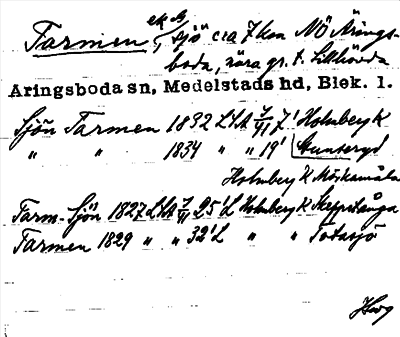 Tarmen, ek. bl, sjö c:a 7 km NÖ Årings-
boda, nära gr. t. Likhövda
Aringsboda sn, Medelstads hd, Blek. l.
Sjön Tarmen 1832 LSA 7/VI 7' Holmberg K
" " 1834 " " 19' Gunteryd
Holmberg K Mörkamåla
Tarm-Sjön 1827 LSA 7/VI 25'L Holmberg K
Tarmen 1829 " " 32'L " " Totasjö
Hwg